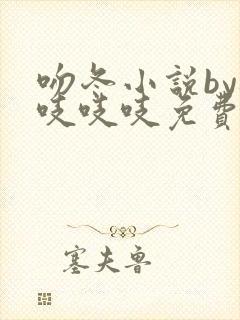 吻冬小説by
吱吱吱免費
塞夫魯